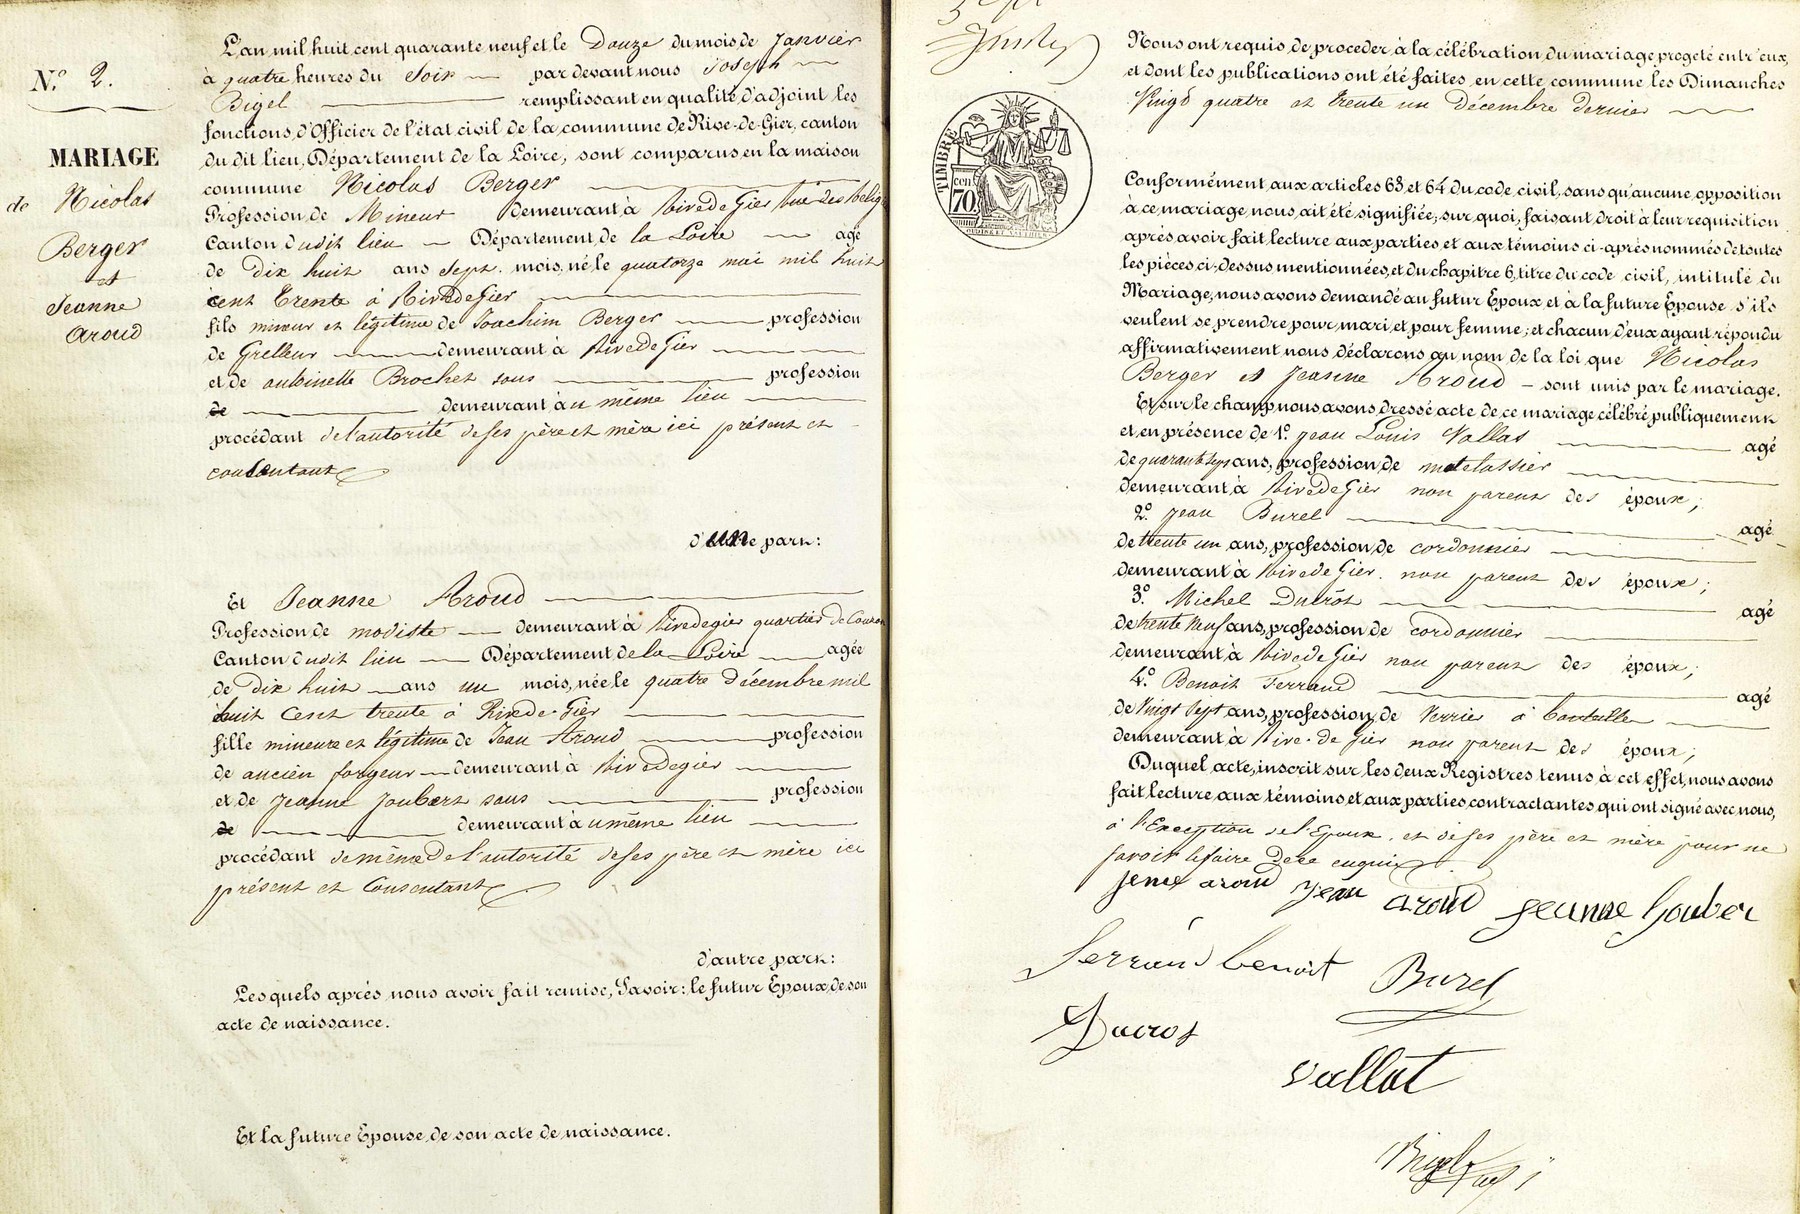 N.° 2.
MARIAGE
de Nicolas
Berger
et
Jeanne
Aroud
L'an mil huit cent quarante neuf et le Douze du mois de Janvier
à quatre heures du Soir par devant nous Joseph
Bigel remplissant en qualité d'adjoint les
fonctions d'Officier de l'état civil de la commune de Rive-de-Gier, canton
du dit lieu, Département de la Loire, sont comparus en la maison
commune Nicolas Berger
Profession de Mineur demeurant à Rive de Gier Rue des
Canton dudit lieu Département de la Loire agé
de Dix huit ans Sept mois, né le quatorze mai mil huit
cent trente à Rive de Gier
fils mineur et légitime de Joachim Berger profession
de Grelleur demeurant à Rive de Gier
et de Brochet sans profession
de demeurant au même lieu
procédant de l'autorité de ses père et mère ici présent et
consentant
d'une part:
Et Jeanne Aroud
Profession de modiste demeurant à Rivedegier quartier de Couzon
Canton dudit lieu Département de la Loire agée
de Dix huit ans un mois, née le quatre décembre mil
huit Cent trente à Rive de Gier
fille mineure et légitime de Jean Aroud profession
de ancien forgeur demeurant à Rivedegier
et de Jeanne Joubert sans profession
de demeurant au même lieu
procédant de même de l'autorité de ses père et mère ici
présent et Consentant
d'autre part:
Lesquels après nous avoir fait remise, Savoir: le futur Epoux, de son
acte de naissance.
Et la future Epouse, de son acte de naissance.
TIMBRE
70 cen
Nous ont requis de proceder à la célébration du mariage progeté entr'eux,
et dont les publications ont été faites en cette commune les Dimanches
Vingt quatre et trente un Décembre dernier
Conformément aux articles 63 et 64 du code civil, sans qu'aucune opposition
à ce mariage nous ait été signifiée; sur quoi, faisant droit à leur requisition
après avoir fait lecture aux parties et aux témoins ci-après nommés de toutes
les pièces ci-dessus mentionnées, et du chapitre 6, titre du code civil, intitulé du
Mariage, nous avons demandé au futur Epoux et à la future Epouse s'ils
veulent se prendre pour mari et pour femme; et chacun d'eux ayant répondu
affirmativement nous déclarons au nom de la loi que Nicolas
Berger et Jeanne Aroud – sont unis par le mariage.
Et sur le champ nous avons dressé acte de ce mariage célébré publiquement
et en présence de 1.° Jean Louis Vallas agé
de quarante sept ans, profession de matelassier
demeurant à Rive de Gier non parent des époux;
2.° Jean Burel agé
de trente un ans, profession de cordonnier
demeurant à Rive de Gier non parent des époux;
3.° Michel Ducrôt agé
de trente neuf ans, profession de cordonnier
demeurant à Rive de Gier non parent des époux;
4.° Benoit Ferrand agé
de Vingt sept ans, profession de Verrier à bouteilles
demeurant à Rive-de Gier non parent des époux;
Duquel acte, inscrit sur les deux Registres tenus à cet effet, nous avons
fait lecture aux témoins, et aux parties contractantes qui ont signé avec nous,
à l'Exception de l'Epoux et de ses père et mère pour ne
savoir le faire de ce enquis
jenne aroud Jean aroud jeanne Jouber
ferrand benoit Burel
Ducros
Vallat
Bigel